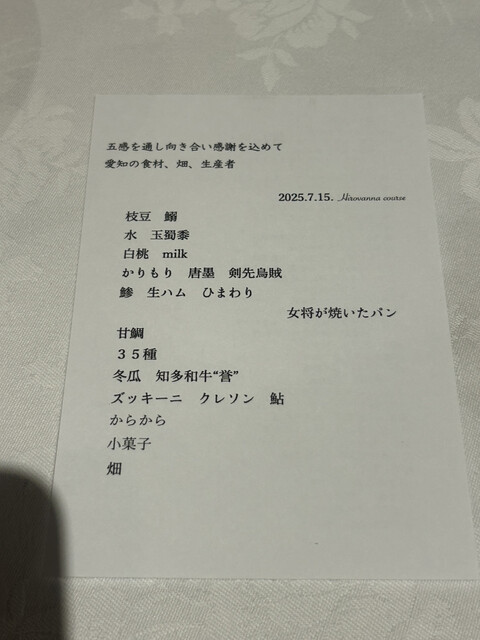 五感を通し向き合い感謝を込めて
愛知の食材、畑、生産者
2025.7.15. Hirovanna course
枝豆　鰯
水　玉蜀黍
白桃　milk
かりもり　唐墨　剣先烏賊
鯵　生ハム　ひまわり
女将が焼いたパン
甘鯛
３５種
冬瓜　知多和牛“誉”
ズッキーニ　クレソン　鮎
からから
小菓子
畑